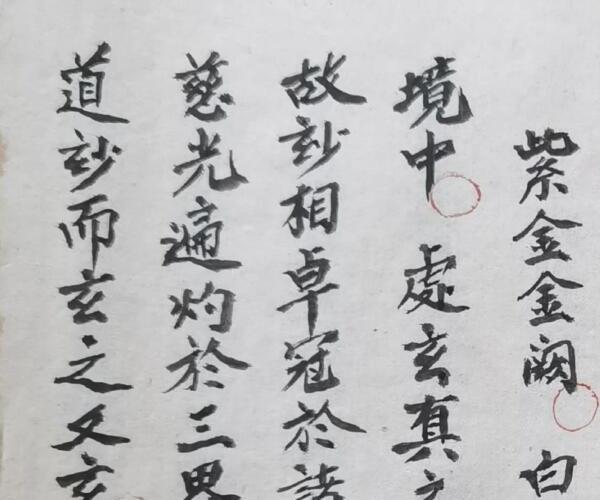 紫金金阙白
境中處玄真
故玅相卓冠於諸
慈光遍灼於三界
道玅而玄之又玄